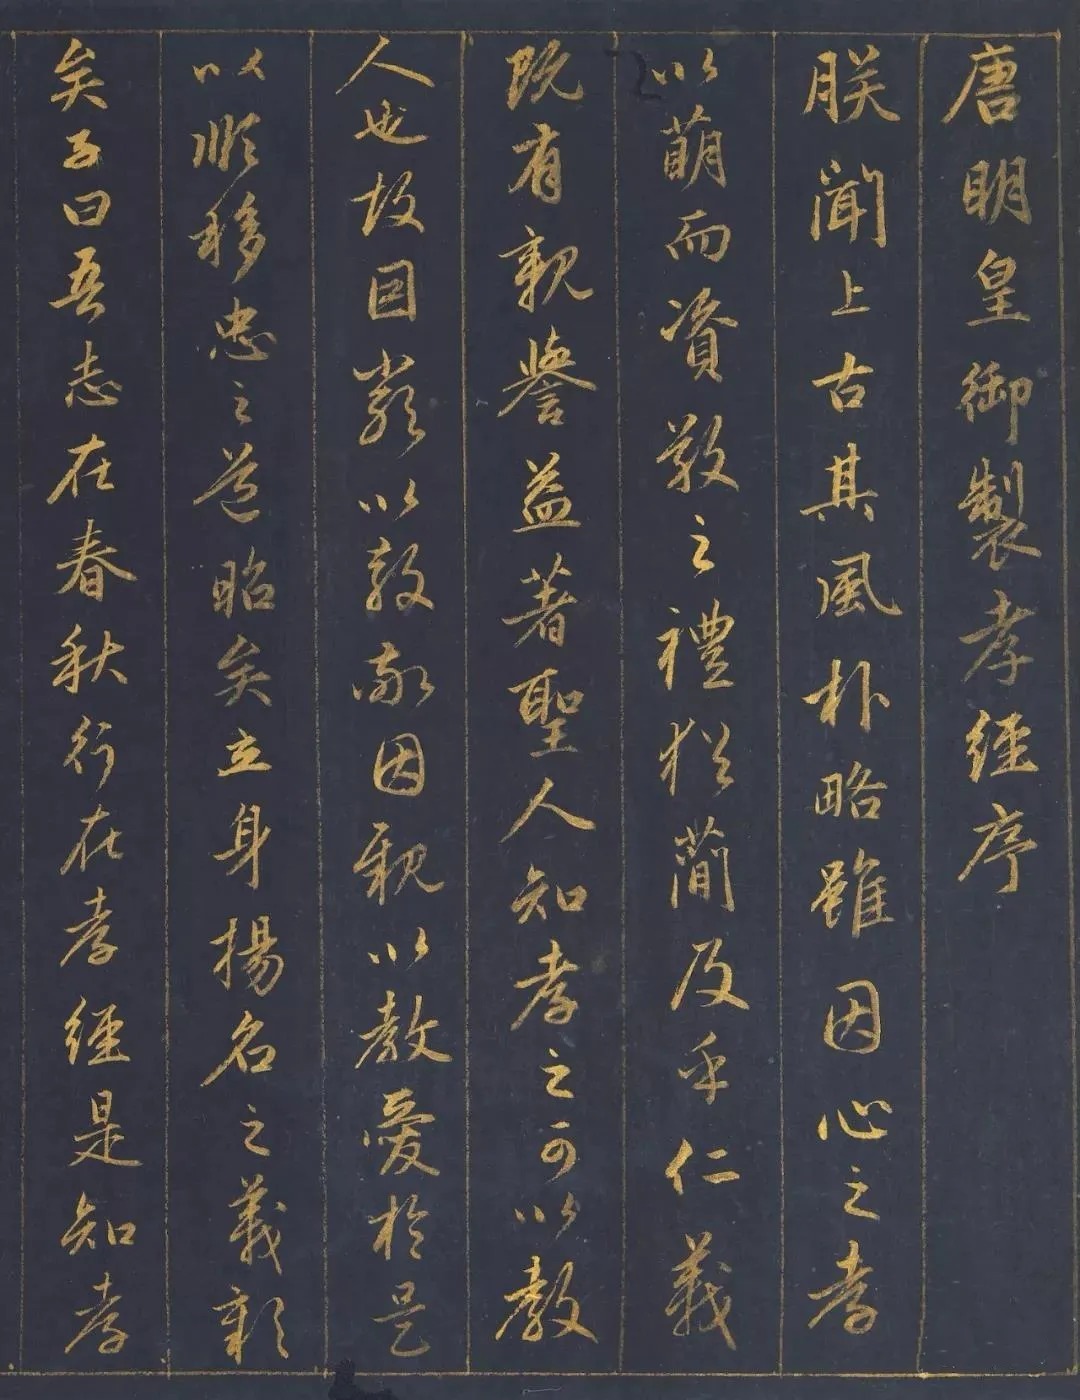 唐明皇御製孝經序
朕聞上古其風朴略雖因心之孝
以萌而資敬之禮猶簡及乎仁義
既有親譽益著聖人知孝之可以教
人也故因嚴以教敬因親以教愛於是
以順移忠之道昭矣立身揚名之義彰
矣子曰吾志在春秋行在孝經是知孝